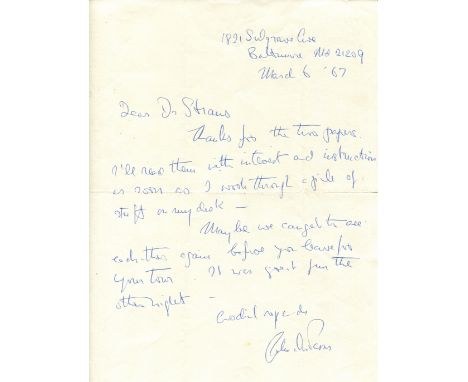 1821 Sulgrave Ave
Baltimore Md 21209
March 6 '67
Dear Dr Straus
Thanks for the two papers.
I'll read them with interest and instruction
as soon as I work through a pile of
stuff on my desk –
Maybe we can get to see
each other again before you leave for
your tour. It was great fun the
other night –
Cordial regards